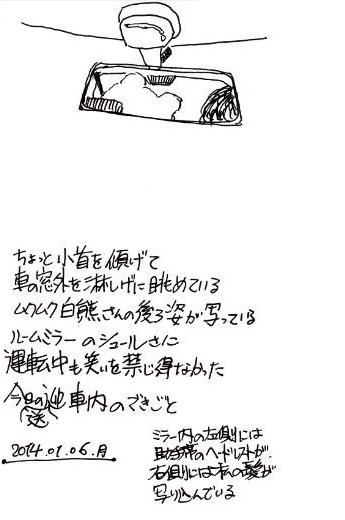 ちょっと小首を傾げて
車の窓外を淋しげに眺めている
ムクムク白熊さんの後ろ姿が写っている
ルームミラーのシュールさに
運転中も笑いを禁じ得なかった
今日の迎車内のできごと
(送)
2014.01.06.月
ミラー内の左側には
助手席のヘッドレストが
右側には私の髪が
写り込んでいる